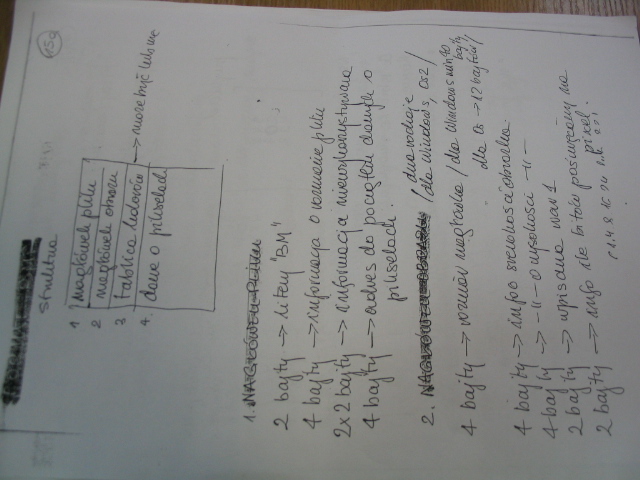 159
Struktura
1 nagłówek pliku
2 nagłówek obrazu
3 tablica kolorów → może być lub nie
4. dane o pikselach
1. NAGŁÓWEK PLIKU
2 bajty → litery "BM"
4 bajty → informacja o rozmiarze pliku
2x2 bajty → informacja niewykorzystywana
4 bajty → adres do początku danych o
pikselach.
2. NAGŁÓWEK OBRAZU / dwa rodzaje
/dla Windows, OS2/
4 bajty → rozmiar nagłówka / dla Windows 40
bajty
dla OS → 12 bajtów /
4 bajty → info o szerokości obrazka.
4 bajty → -||- o wysokości -||-
2 bajty → wpisana war 1
2 bajty → info ile bitów poświęcony na
piksel.
1 4 8 16 24